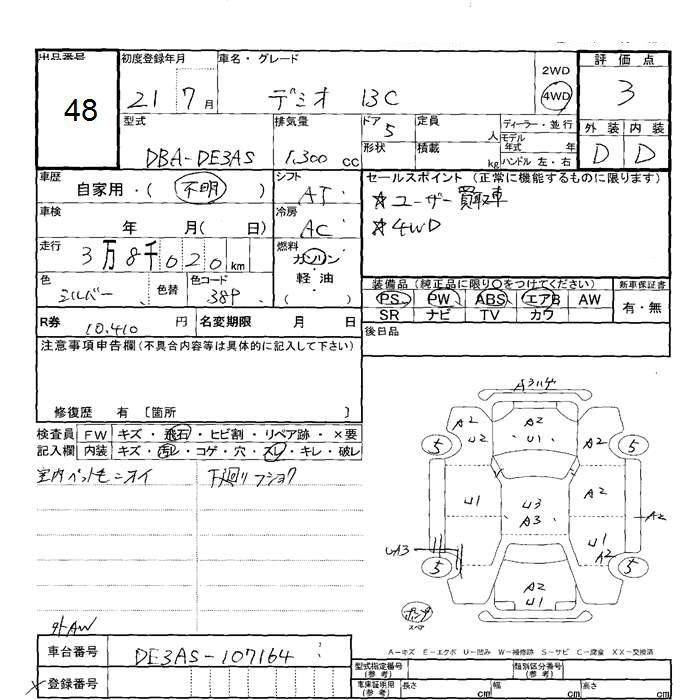 出品番号 初度登録年月 車名・グレード 2WD 評価点
48 21 7月 デミオ 13C 4WD 3
型式 排気量 ドア 5 定員 人 ディーラー・並行 外装 内装
DBA-DE3AS 1,300 cc 形状 積載 kg モデル年式 年 ハンドル 左・右 D D
車歴 自家用・(不明) シフト AT セールスポイント (正常に機能するものに限ります)
☆ ユーザー買取車
車検 年 月( 日) 冷房 AC ☆ 4WD
走行 3万8千020km 燃料 ガソリン 軽油 ( )
装備品 (純正品に限り〇をつけてください) 新車保証書
色 シルバー 色替 色コード 38P PS PW ABS エアB AW 有・無
SR ナビ TV カワ
R券 10,410 円 名変期限 月 日 後日品
注意事項申告欄(不具合内容等は具体的に記入して下さい)
修復歴 有 〔箇所 〕
検査員 FW キズ・飛石・ヒビ割・リペア跡・×要
記入欄 内装 キズ・汚レ・コゲ・穴・スレ・キレ・破レ
室内ペットモニオイ 下廻リフショク
A3ハゲ
A2 A2 A2
U2 U1
5 5
U1 U3 A2
A3 A2
UA3 U1
A2
5 5
A2
U1
スペア
A-キズ E-エクボ U-凹み W-補修跡 S-サビ C-腐食 XX-交換済
外AW
車台番号 DE3AS-107164
型式指定番号(参考) 類別区分番号(参考)
×登録番号 車庫証明用(参考) 長さ cm 幅 cm 高さ cm